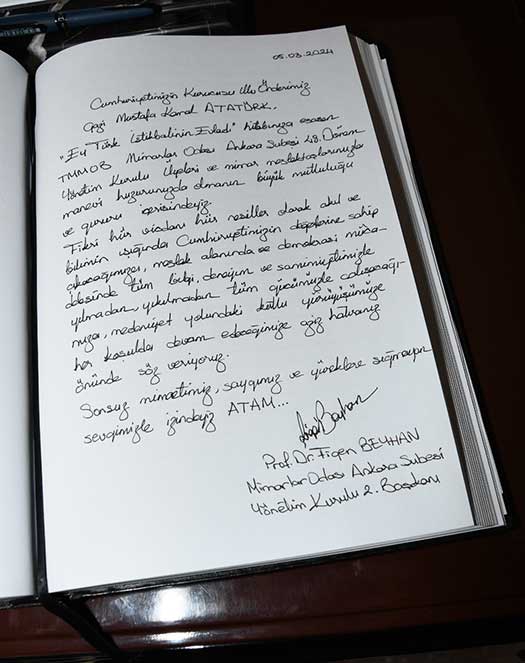 05.03.2024
Cumhuriyetimizin Kurucusu Ulu Önderimiz
Gazi Mustafa Kemal ATATÜRK,
"Ey Türk istikbalinin Evladı" hitabınıza esasen
TMMOB Mimarlar Odası Ankara Şubesi 48. Dönem
Yönetim Kurulu Üyeleri ve mimar meslektaşlarımızla
manevi huzurunuzda olmanın büyük mutluluğu
ve gururu içerisindeyiz.
Fikri hür vicdanı hür nesiller olarak akıl ve
bilimin ışığında Cumhuriyetimizin değerlerine sahip
çıkacağımıza, meslek alanında ve demokrasi müca-
delesinde tüm bilgi, deneyim ve samimiyetimizle
yılmadan yıkılmadan tüm gücümüzle çalışacağı-
mıza, medeniyet yolundaki kutlu yürüyüşümüze
her koşulda devam edeceğimize aziz hatıranız
önünde söz veriyoruz.
Sonsuz minnetimiz, saygımız ve yüreklere sığmayan
sevgimizle izindeyiz ATAM...
Prof. Dr. Figen BEYHAN
Mimarlar Odası Ankara Şubesi
Yönetim Kurulu 2. Başkanı